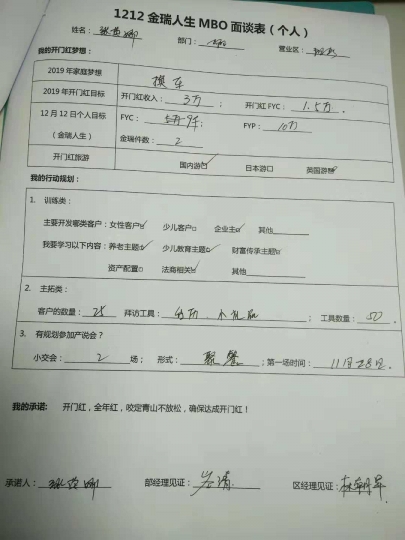 1212 金瑞人生 MBO 面谈表（个人）
姓名： 部门： 营业区：
我的开门红梦想：
2019 年家庭梦想 换车
2019 年开门红目标 开门红收入：3万； 开门红 FYC：1.5万。
12 月 12 日个人目标（金瑞人生） FYC： 9仟； FYP：10万
金瑞件数：2
开门红旅游 国内游□✓ 日本游□ 英国游□✓
我的行动规划：
1. 训练类：
主要开发哪类客户：女性客户□✓ 少儿客户□ 企业主□✓ 其他
我要学习以下内容：养老主题□✓ 少儿教育主题□✓ 财富传承主题□
资产配置□ 法商相关□✓ 其他
2. 主拓类：
客户的数量：25 拜访工具： 小礼品 ； 工具数量：50.
3. 有规划参加产说会？
小交会：2 场； 形式：聚餐 ；第一场时间：11月28日.
我的承诺： 开门红，全年红，咬定青山不放松，确保达成开门红！
承诺人： 部经理见证： 区经理见证：